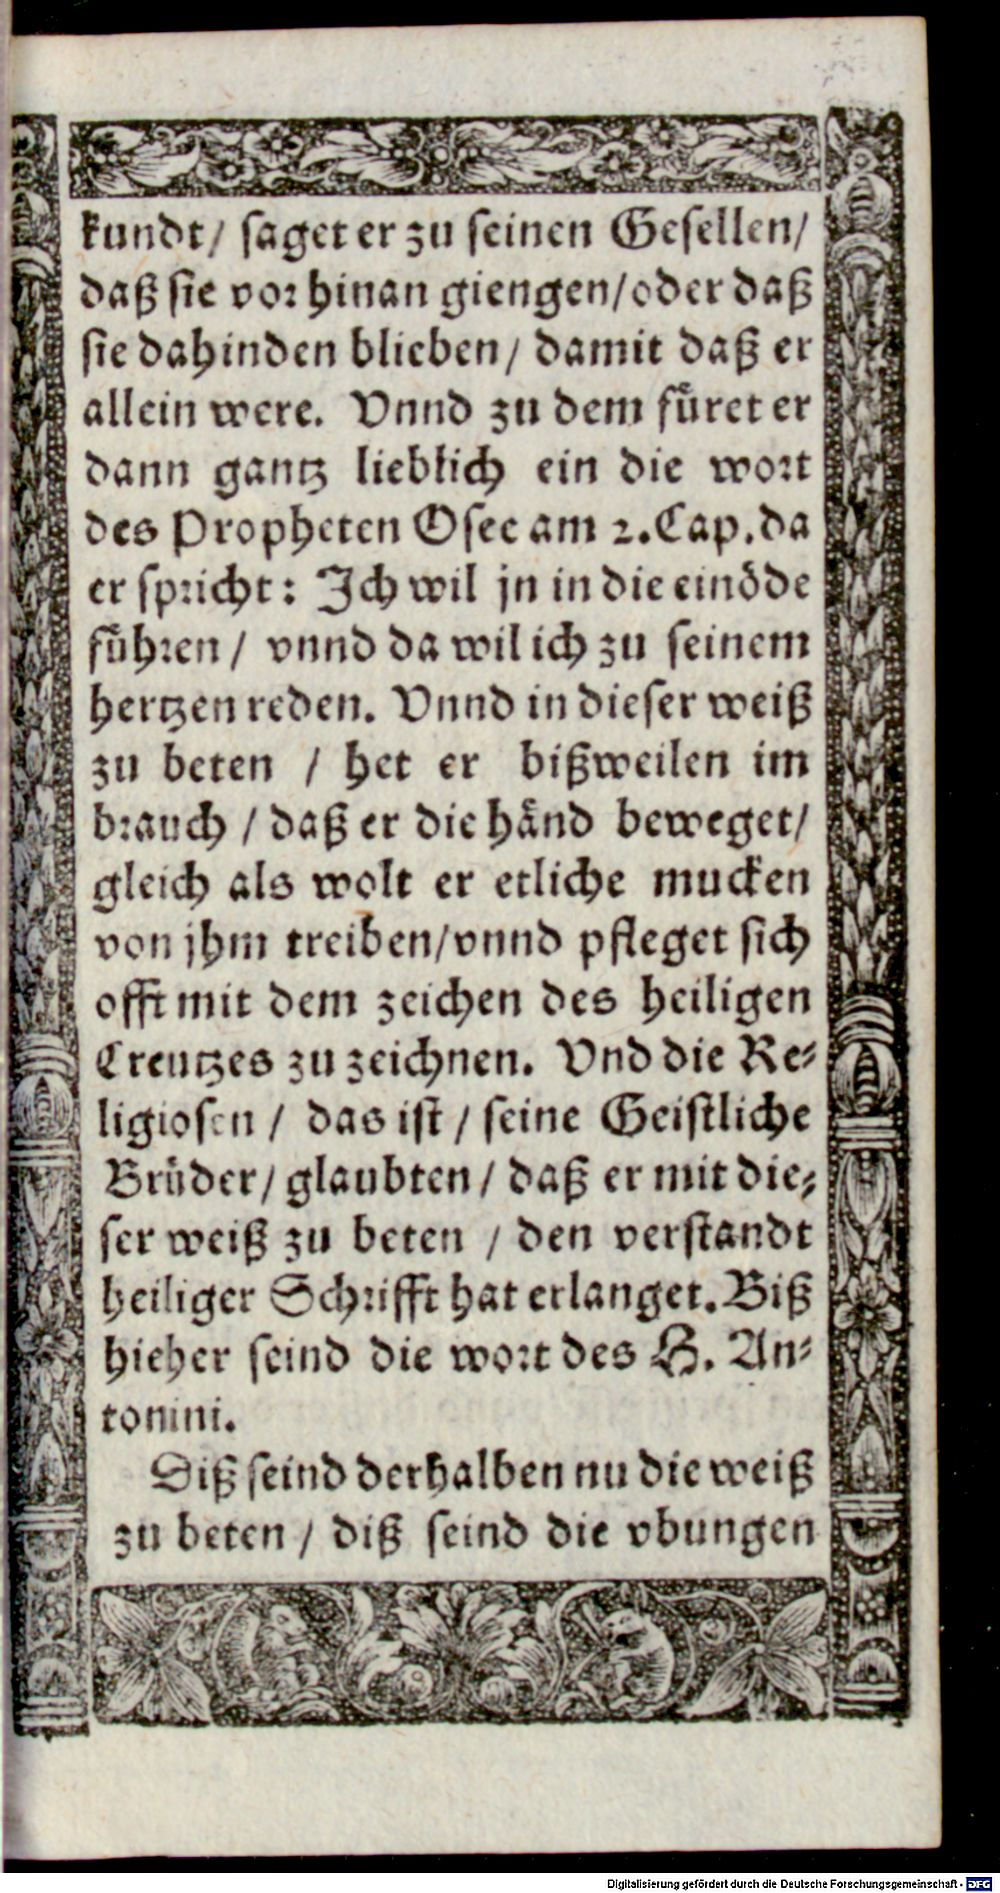 kundt/ saget er zu seinen Gesellen/
daß sie vor hinan giengen/oder daß
sie dahinden blieben/ damit daß er
allein were. Vnnd zu dem füret er
dann gantz lieblich ein die wort
des Propheten Osee am 2. Cap. da
er spricht: Ich wil jn in die einöde
führen/ vnnd da wil ich zu seinem
hertzen reden. Vnnd in dieser weiß
zu beten / het er bißweilen im
brauch / daß er die händ beweget/
gleich als wolt er etliche mucken
von jhm treiben/vnnd pfleget sich
offt mit dem zeichen des heiligen
Creutzes zu zeichnen. Vnd die Re-
ligiosen / das ist / seine Geistliche
Brüder/ glaubten / daß er mit die-
ser weiß zu beten / den verstandt
heiliger Schrifft hat erlanget. Biß
hieher seind die wort des H. An-
tonini.
Diß seind derhalben nu die weiß
zu beten / diß seind die vbungen
Digitalisierung gefördert durch die Deutsche Forschungsgemeinschaft - DFG